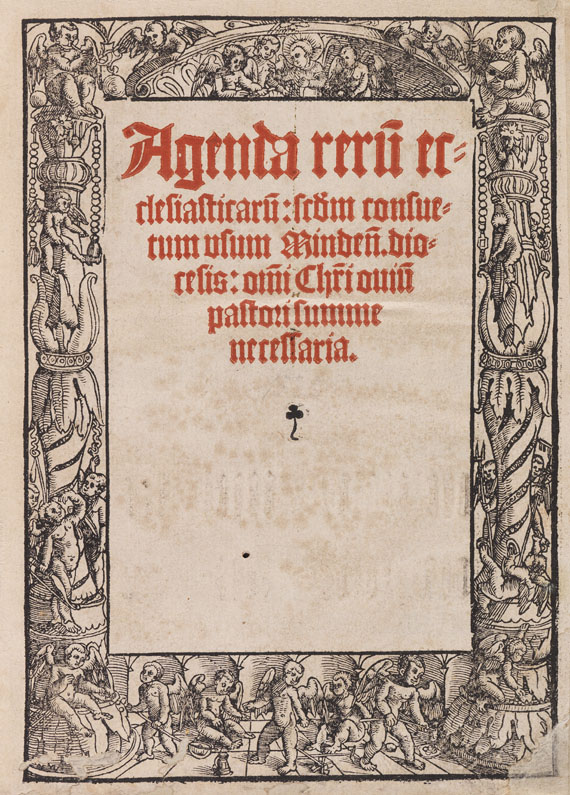 Agenda rerū ec⸗
clesiasticarū: scd̄m consue⸗
tum usum Minden̄. dio⸗
cesis: om̄i Chr̄i oviū
pastori summe
necessaria.